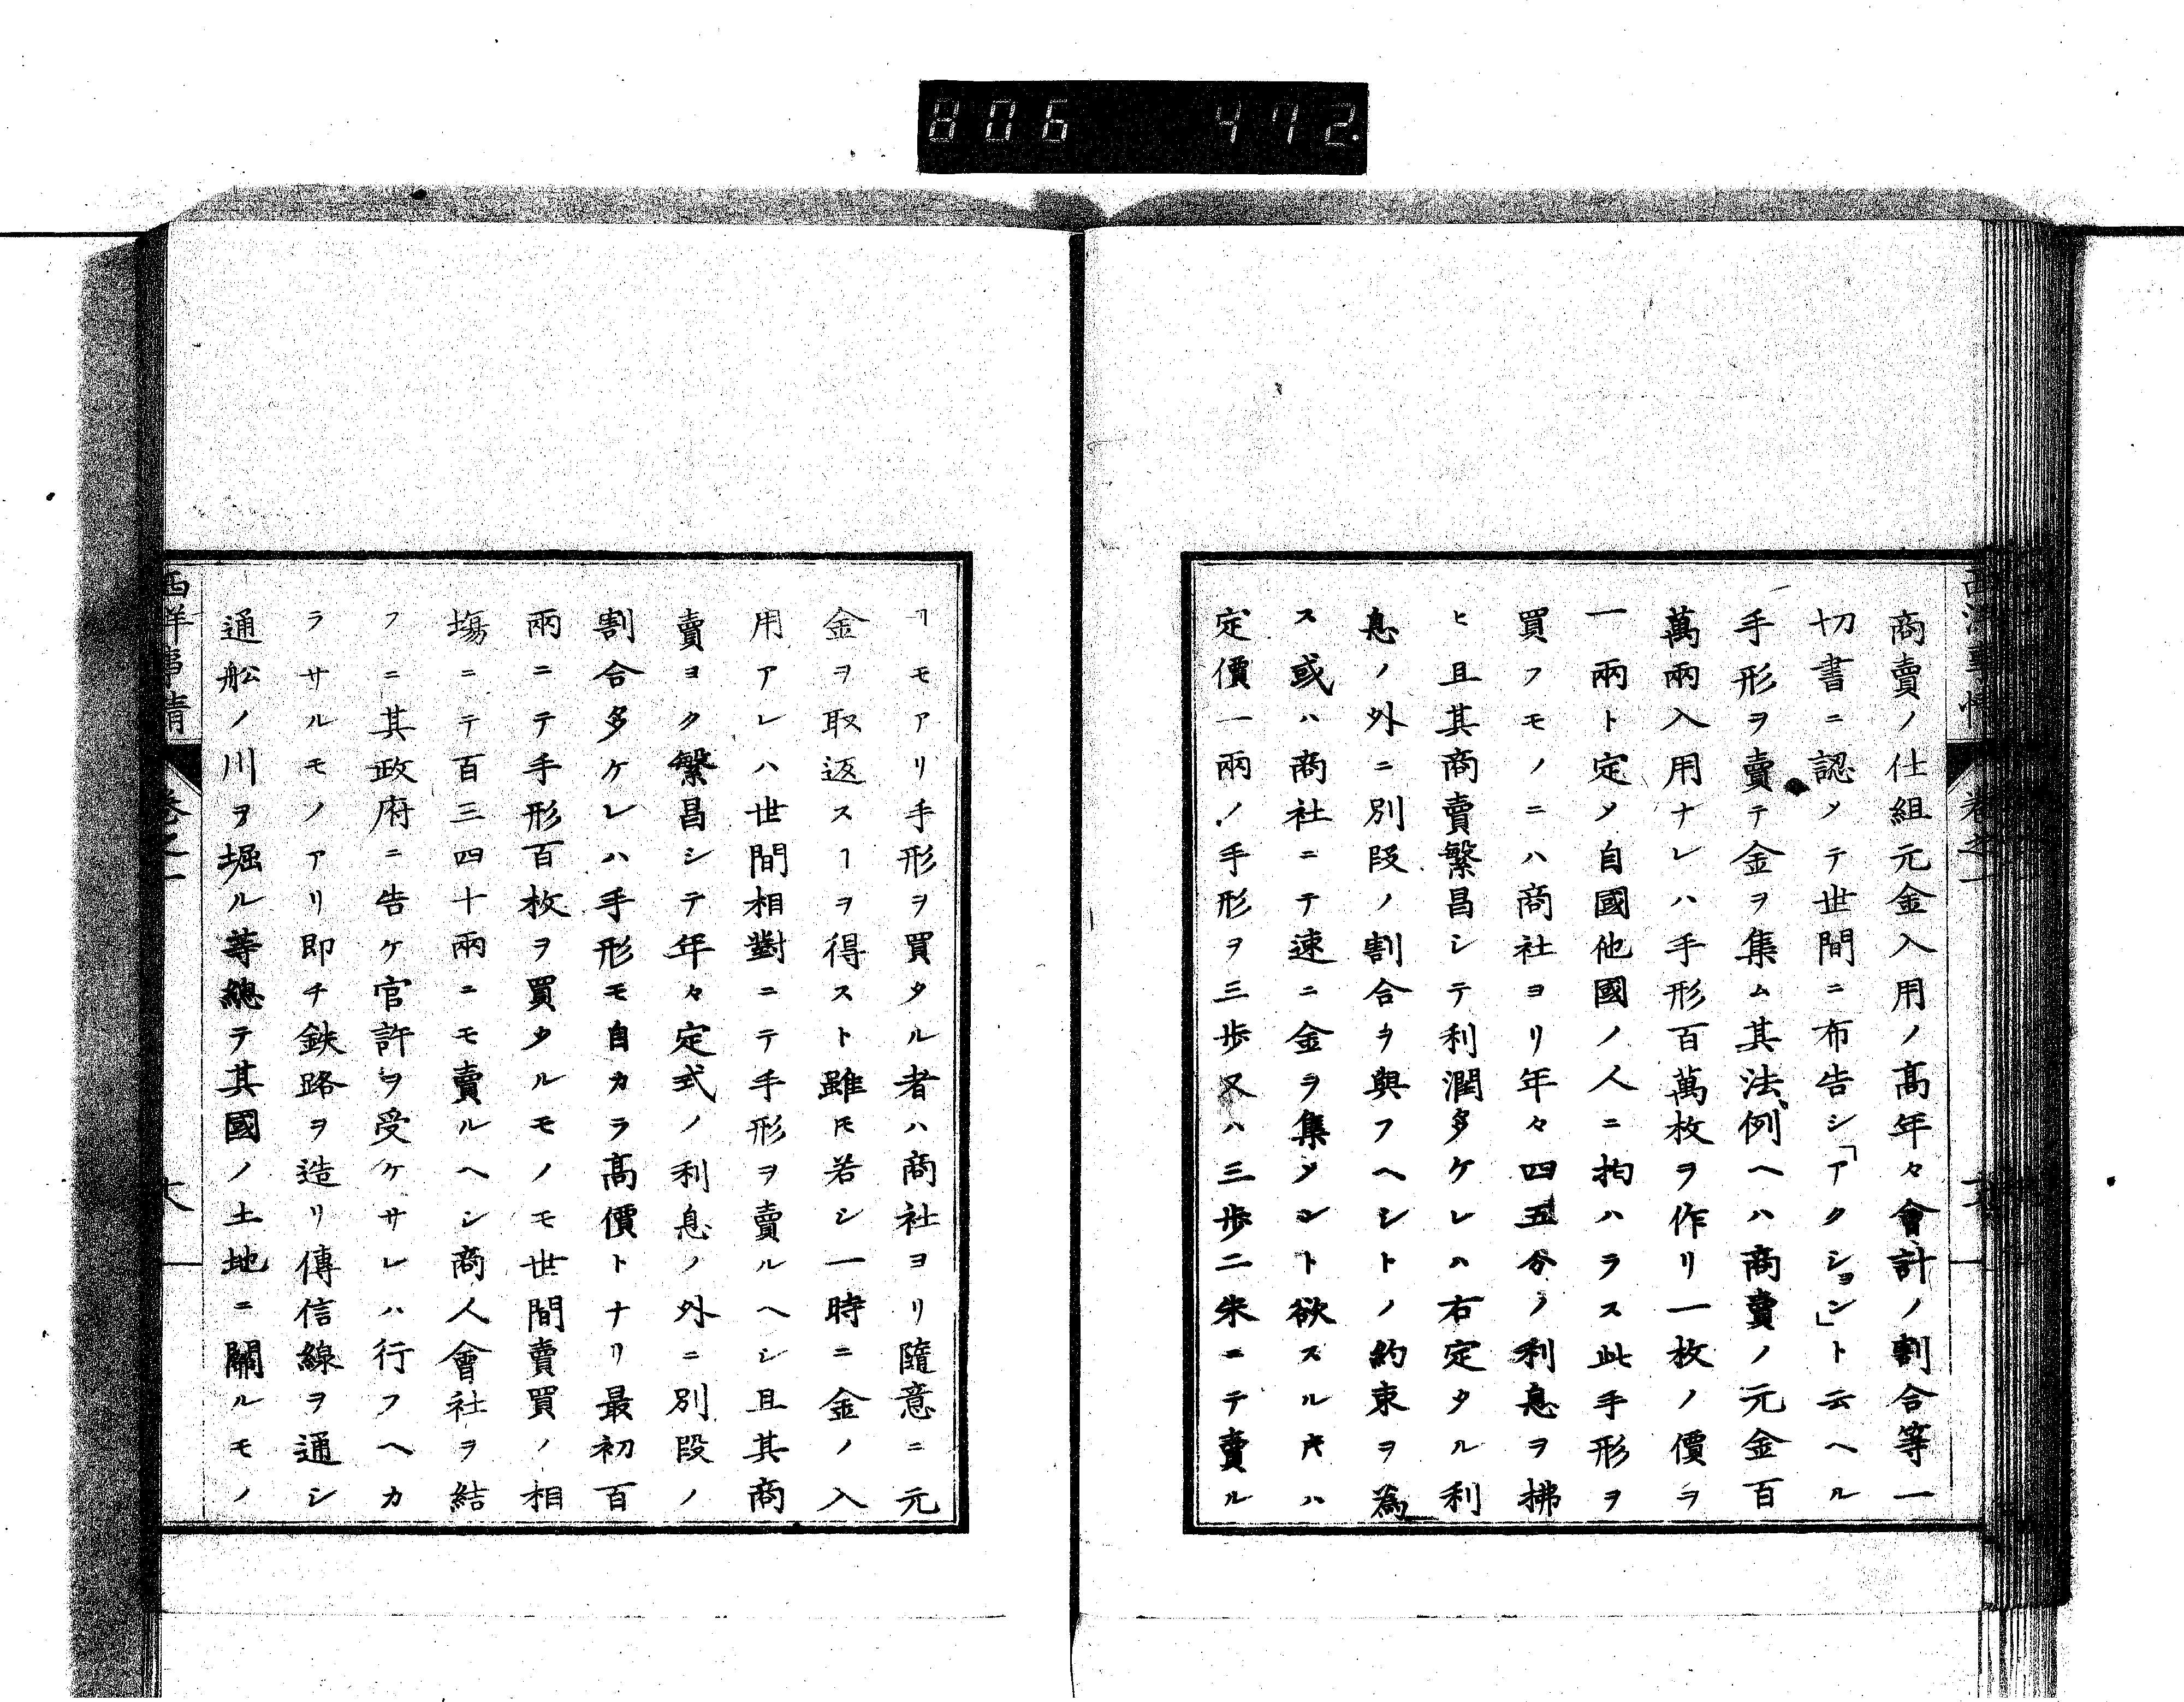 806 472.
商賣ノ仕組元金入用ノ髙年々會計ノ割合等一
切書ニ認メテ世間ニ布告シ「アクション」ト云ヘル
手形ヲ賣テ金ヲ集ム其法例ヘハ商賣ノ元金百
萬兩入用ナレハ手形百萬枚ヲ作リ一枚ノ價ヲ
一兩ト定メ自國他國ノ人ニ拘ハラス此手形ヲ
買フモノニハ商社ヨリ年々四五分ノ利息ヲ拂
ヒ且其商賣繁昌シテ利潤多ケレハ右定タル利
息ノ外ニ別段ノ割合ヲ與フヘシトノ約束ヲ爲
ス或ハ商社ニテ速ニ金ヲ集メント欲スル𪜈ハ
定價一兩ノ手形ヲ三歩又ハ三歩二朱ニテ賣ル
ヿモアリ手形ヲ買タル者ハ商社ヨリ隨意ニ元
金ヲ取返スヿヲ得スト雖𪜈若シ一時ニ金ノ入
用アレハ世間相對ニテ手形ヲ賣ルヘシ且其商
賣ヨク繁昌シテ年々定式ノ利息ノ外ニ別段ノ
割合多ケレハ手形モ自カラ髙價トナリ最初百
兩ニテ手形百枚ヲ買タルモノモ世間賣買ノ相
塲ニテ百三四十兩ニモ賣ルヘシ商人會社ヲ結
フニ其政府ニ告ケ官許ヲ受ケサレハ行フヘカ
ラサルモノアリ即チ鉄路ヲ造リ傳信線ヲ通シ
通舩ノ川ヲ堀ル等總テ其國ノ土地ニ關ルモノ
西洋事情 卷之一